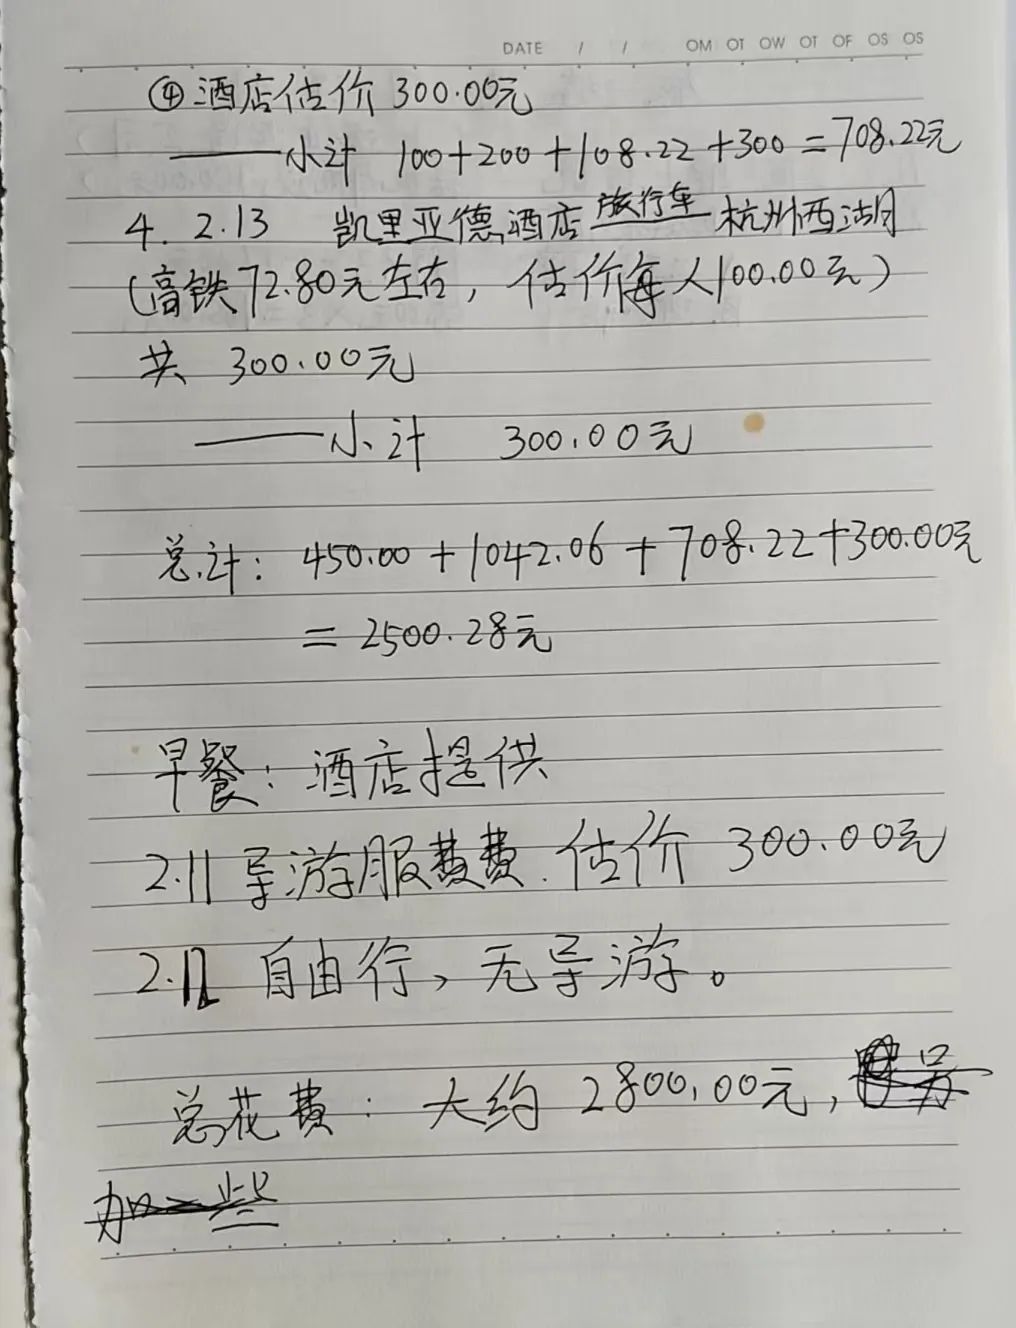 DATE / / OM OT OW OT OF OS OS
④酒店估价 300.00元
——小计 100+200+108.22+300=708.22元
4. 2.13 凯里亚德酒店 旅行车 杭州西湖
(高铁72.80元左右，估价每人100.00元)
共 300.00元
——小计 300.00元
总计: 450.00+1042.06+708.22+300.00元
=2500.28元
早餐: 酒店提供
2.11 导游服费费.估价 300.00元
2.12 自由行，无导游。
总花费: 大约 2800.00元，